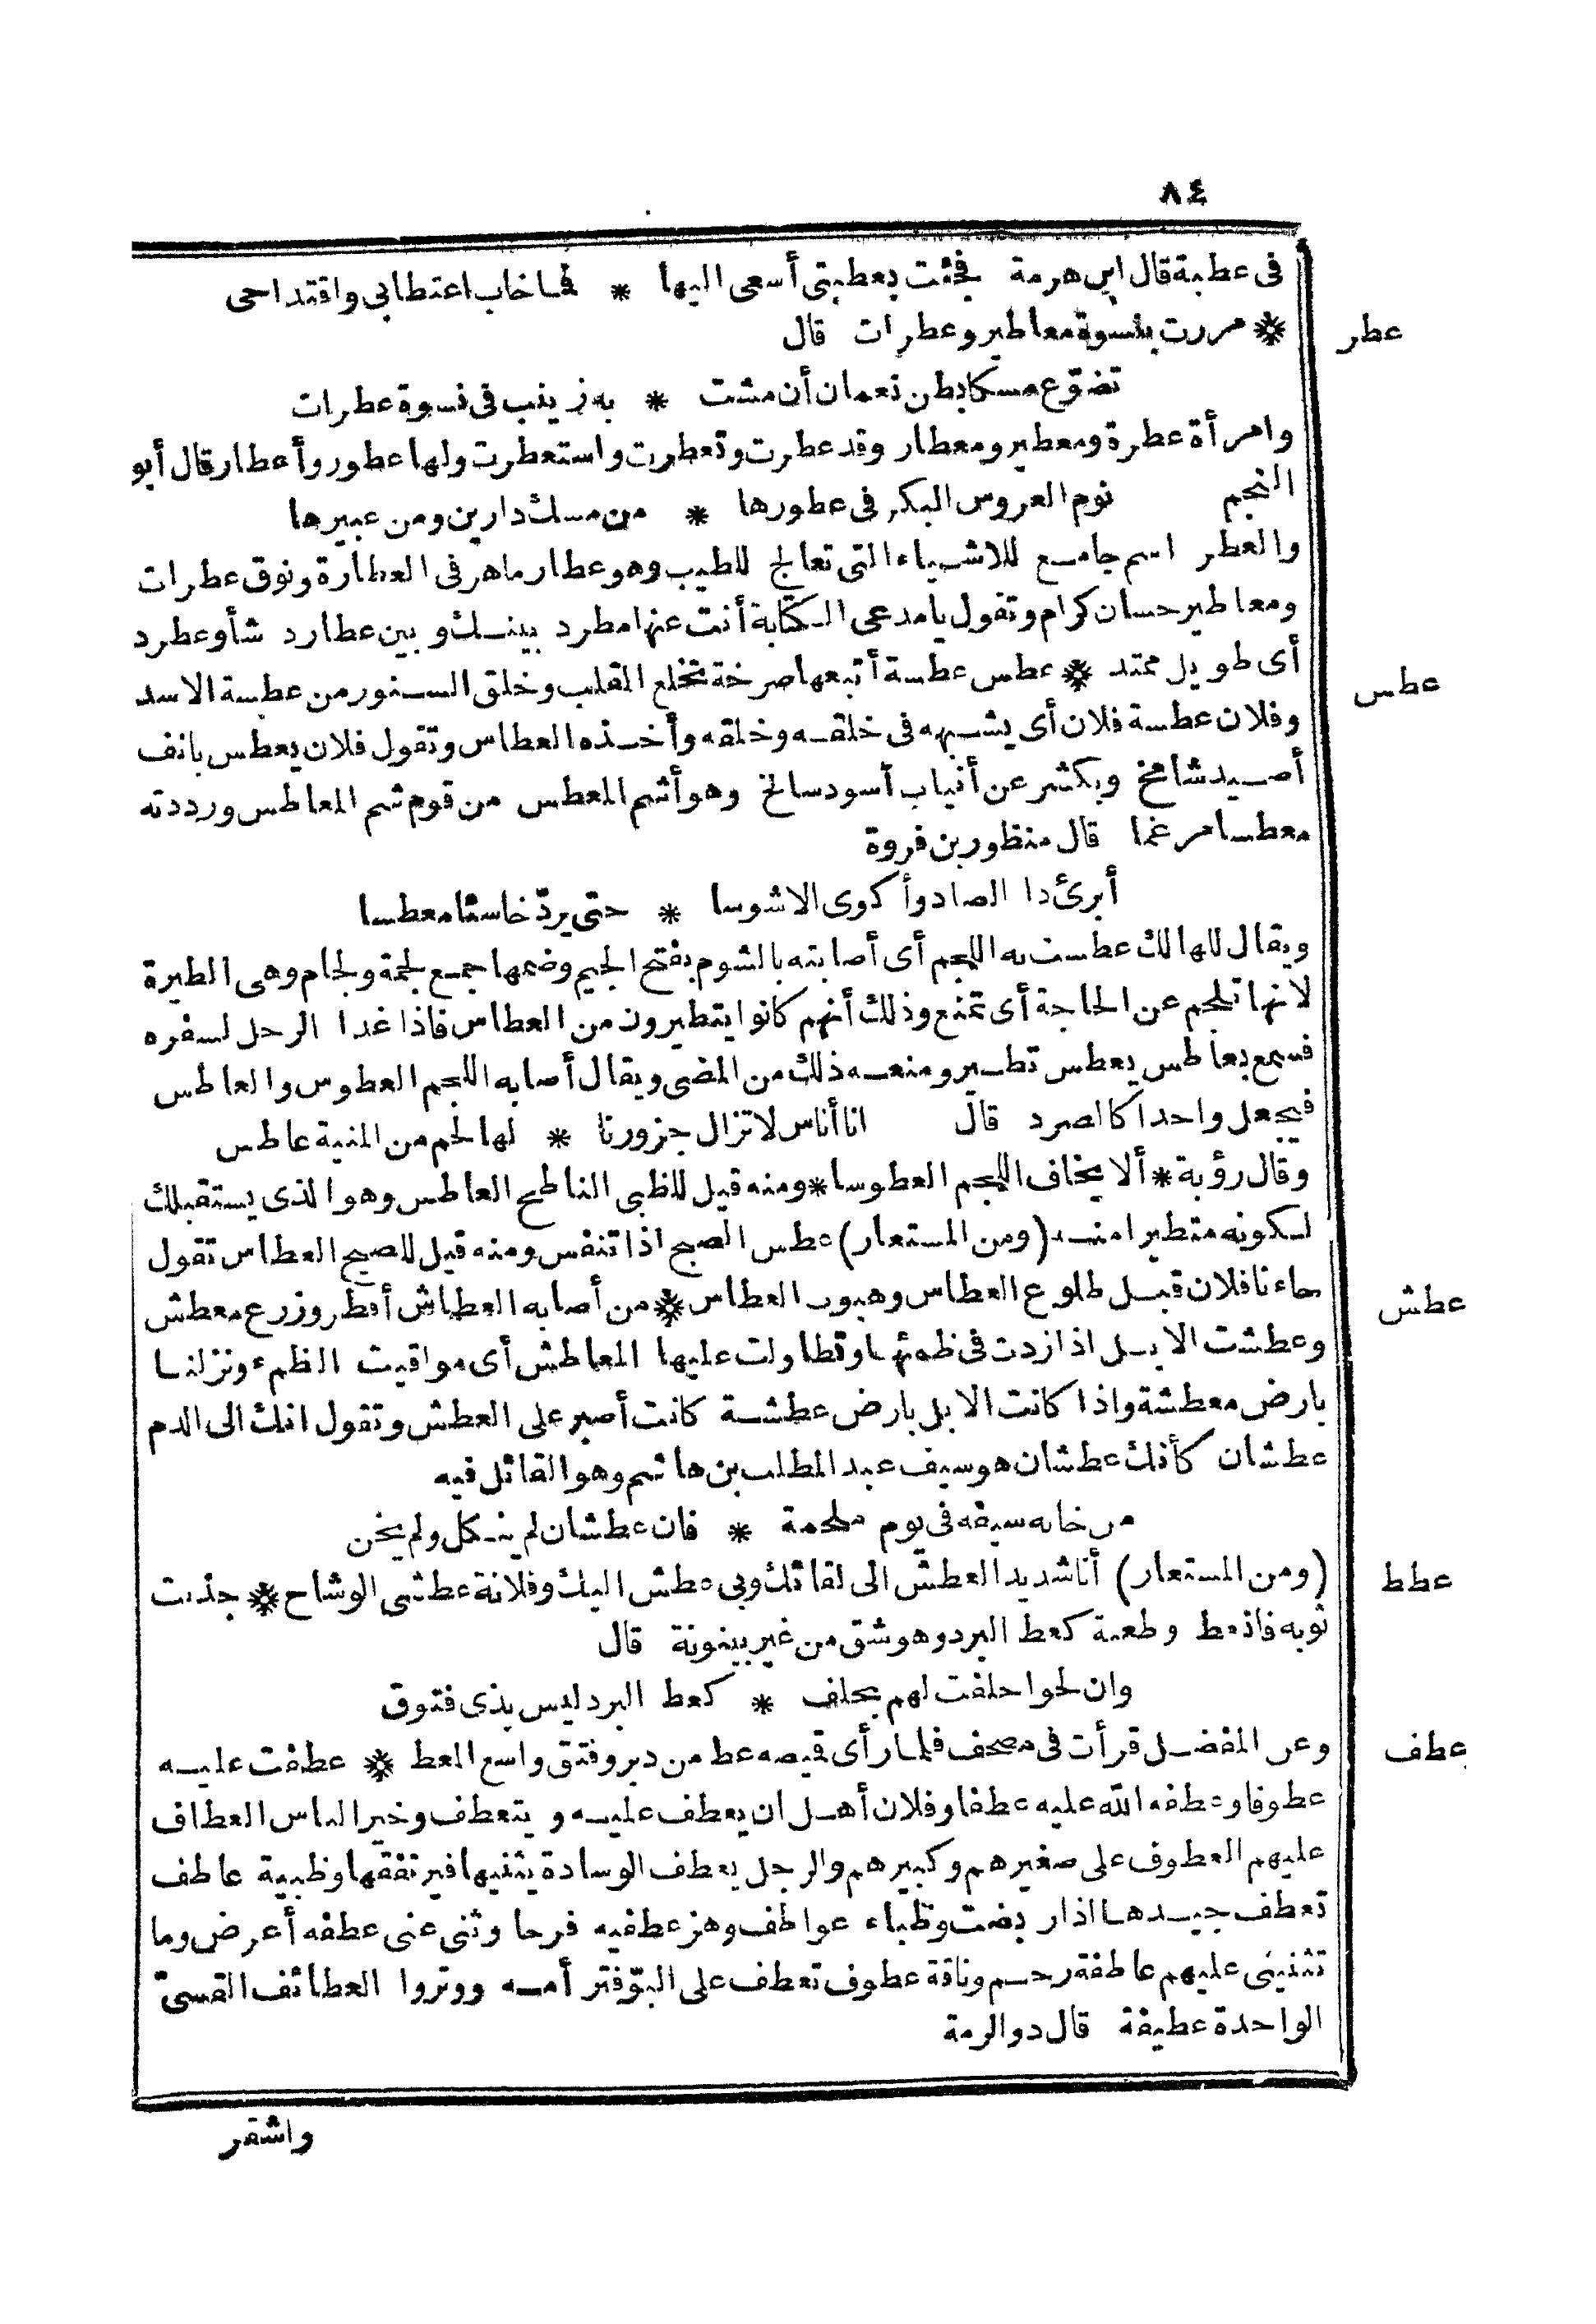 ٨٤
فى عطبة قال ابن هرمة فجئت بعطبتى أسعى اليها * فما خاب اعتطابى واقتداحى
عطر
* مررت بنسوة معاطير وعطرات قال
تضوّع مسكا بطن نعمان أن مشت * به زينب فى نسوة عطرات
وامرأة عطرة ومعطير ومعطار وقد عطرت وتعطرت واستعطرت ولها عطور وأعطار قال أبو
النجم نوم العروس البكر فى عطورها * من مسك دارين ومن عبيرها
والعطر اسم جامع للاشياء التى تعالج للطيب وهو عطار ماهر فى العطارة ونوق عطرات
ومعاطير حسان كرام وتقول يا مدعى الكتابة أنت عنها مطرد بينك وبين عطارد شأو عطرد
أى طويل ممتد * عطس عطسة أتبعها صرخة تخلع القلب وخلق السنور من عطسة الاسد
عطس
وفلان عطسة فلان أى يشبهه فى خلقه وخلقه وأخذه العطاس وتقول فلان يعطس بانف
أصيد شامخ ويكشر عن أنياب أسود سالخ وهو أشم المعطس من قوم شم المعاطس ورددته
معطسا مرغما قال منظور بن فروة
أبرئ دا الصاد وأكوى الاشوسا * حتى يردّ خاسئا معطسا
ويقال للهالك عطست به اللجم أى أصابته بالشوم بفتح الجيم وضمها جمع لجمة ولجام وهى الطيرة
لانها تلجم عن الحاجة أى تمنع وذلك أنهم كانوا يتطيرون من العطاس فاذا غدا الرجل لسفره
فسمع بعاطس يعطس تطير ومنعه ذلك من المضى ويقال أصابه اللجم العطوس والعاطس
فيجعل واحدا كالصرد قال انا أناس لا تزال جزورنا * لها لجم من المنية عاطس
وقال رؤبة * ألا يخاف اللجم العطوسا * ومنه قيل للظبى الناطح العاطس وهو الذى يستقبلك
لكونه متطيرا منه (ومن المستعار) عطس الصبح اذا تنفس ومنه قيل للصبح العطاس تقول
جاءنا فلان قبل طلوع العطاس وهبوب العطاس * من أصابه العطاش أفطر وزرع معطش
عطش
وعطشت الابل اذا زدت فى ظمئها وتطاولت عليها المعاطش أى مواقيت الظمء ونزلنا
بارض معطشة واذا كانت الابل بارض عطشة كانت أصبر على العطش وتقول انك الى الدم
عطشان كأنك عطشان هو سيف عبد المطلب بن هاشم وهو القائل فيه
من خانه سيفه فى يوم ملحمة * فان عطشان لم ينكل ولم يخن
(ومن المستعار) أنا شديد العطش الى لقائك وبى عطش اليك وفلانة عطشى الوشاح * جذبت
عطط
ثوبه فانعط وطعنة كعط البرد وهو شق من غير بينونة قال
وان لحوا حلفت لهم بحلف * كعط البرد ليس بذى فتوق
وعن المفضل قرأت فى مصحف فلما رأى قميصه عط من دبر وفتق واسع المعط * عطفت عليه
عطف
عطوفا وعطفه الله عليه عطفا وفلان أهل ان يعطف عليه ويتعطف وخير الناس العطاف
عليهم العطوف على صغيرهم وكبيرهم والرجل يعطف الوسادة يثنيها فيرتفقها وظبية عاطف
تعطف جيدها اذا ربضت وظباء عواطف وهز عطفيه فرحا وثنى عنى عطفه أعرض وما
تثنينى عليهم عاطفة رحم وناقة عطوف تعطف على البوّ فترأمه ووتروا العطائف القسىّ
الواحدة عطيفة قال ذو الرمة
واشقر